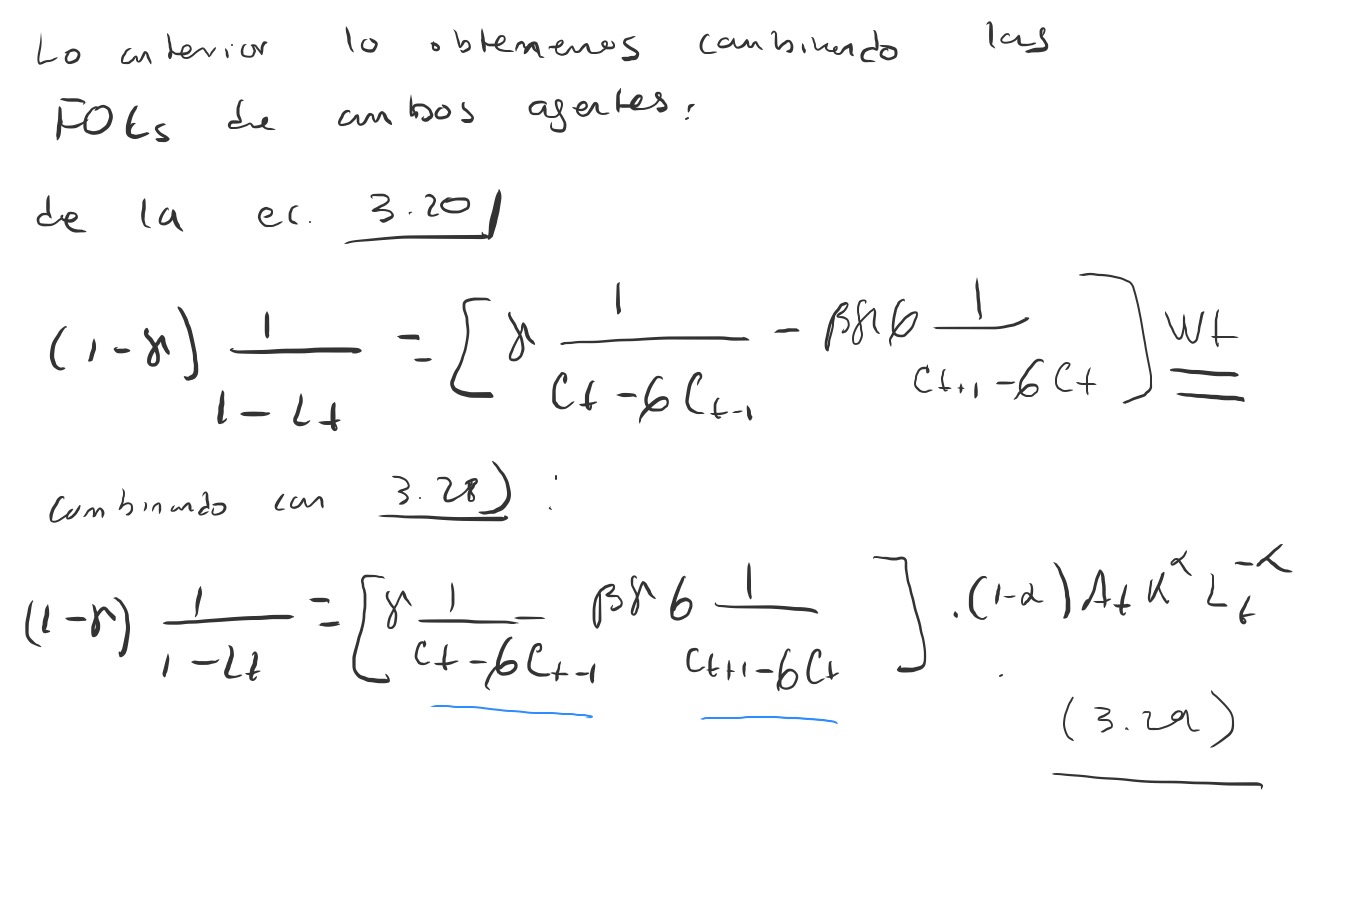 Lo anterior lo obtenemos combinando las
FOCs de ambos agentes:
de la ec. 3.20)
(1-γ) 1/(1-Lt) = [γ 1/(Ct-6Ct-1) - βγ6 1/(Ct+1-6Ct)] Wt
combinando con 3.28) :
(1-γ) 1/(1-Lt) = [γ 1/(Ct-6Ct-1) βγ6 1/(Ct+1-6Ct)] .(1-α) At K^α Lt^-α
(3.29)